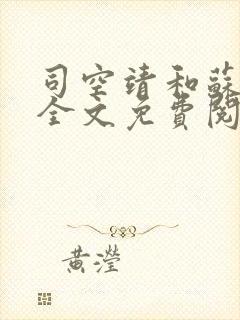 司空靖和蘇
全文免費閱
黃瀅